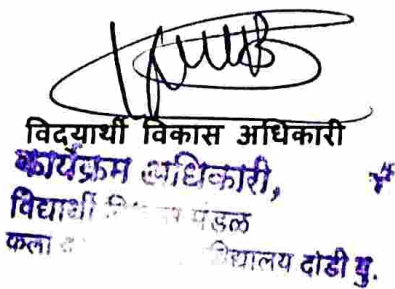 विद्यार्थी विकास अधिकारी
कार्यक्रम अधिकारी,
विद्यार्थी मंडळ
कला विद्यालय दोंडी बु.